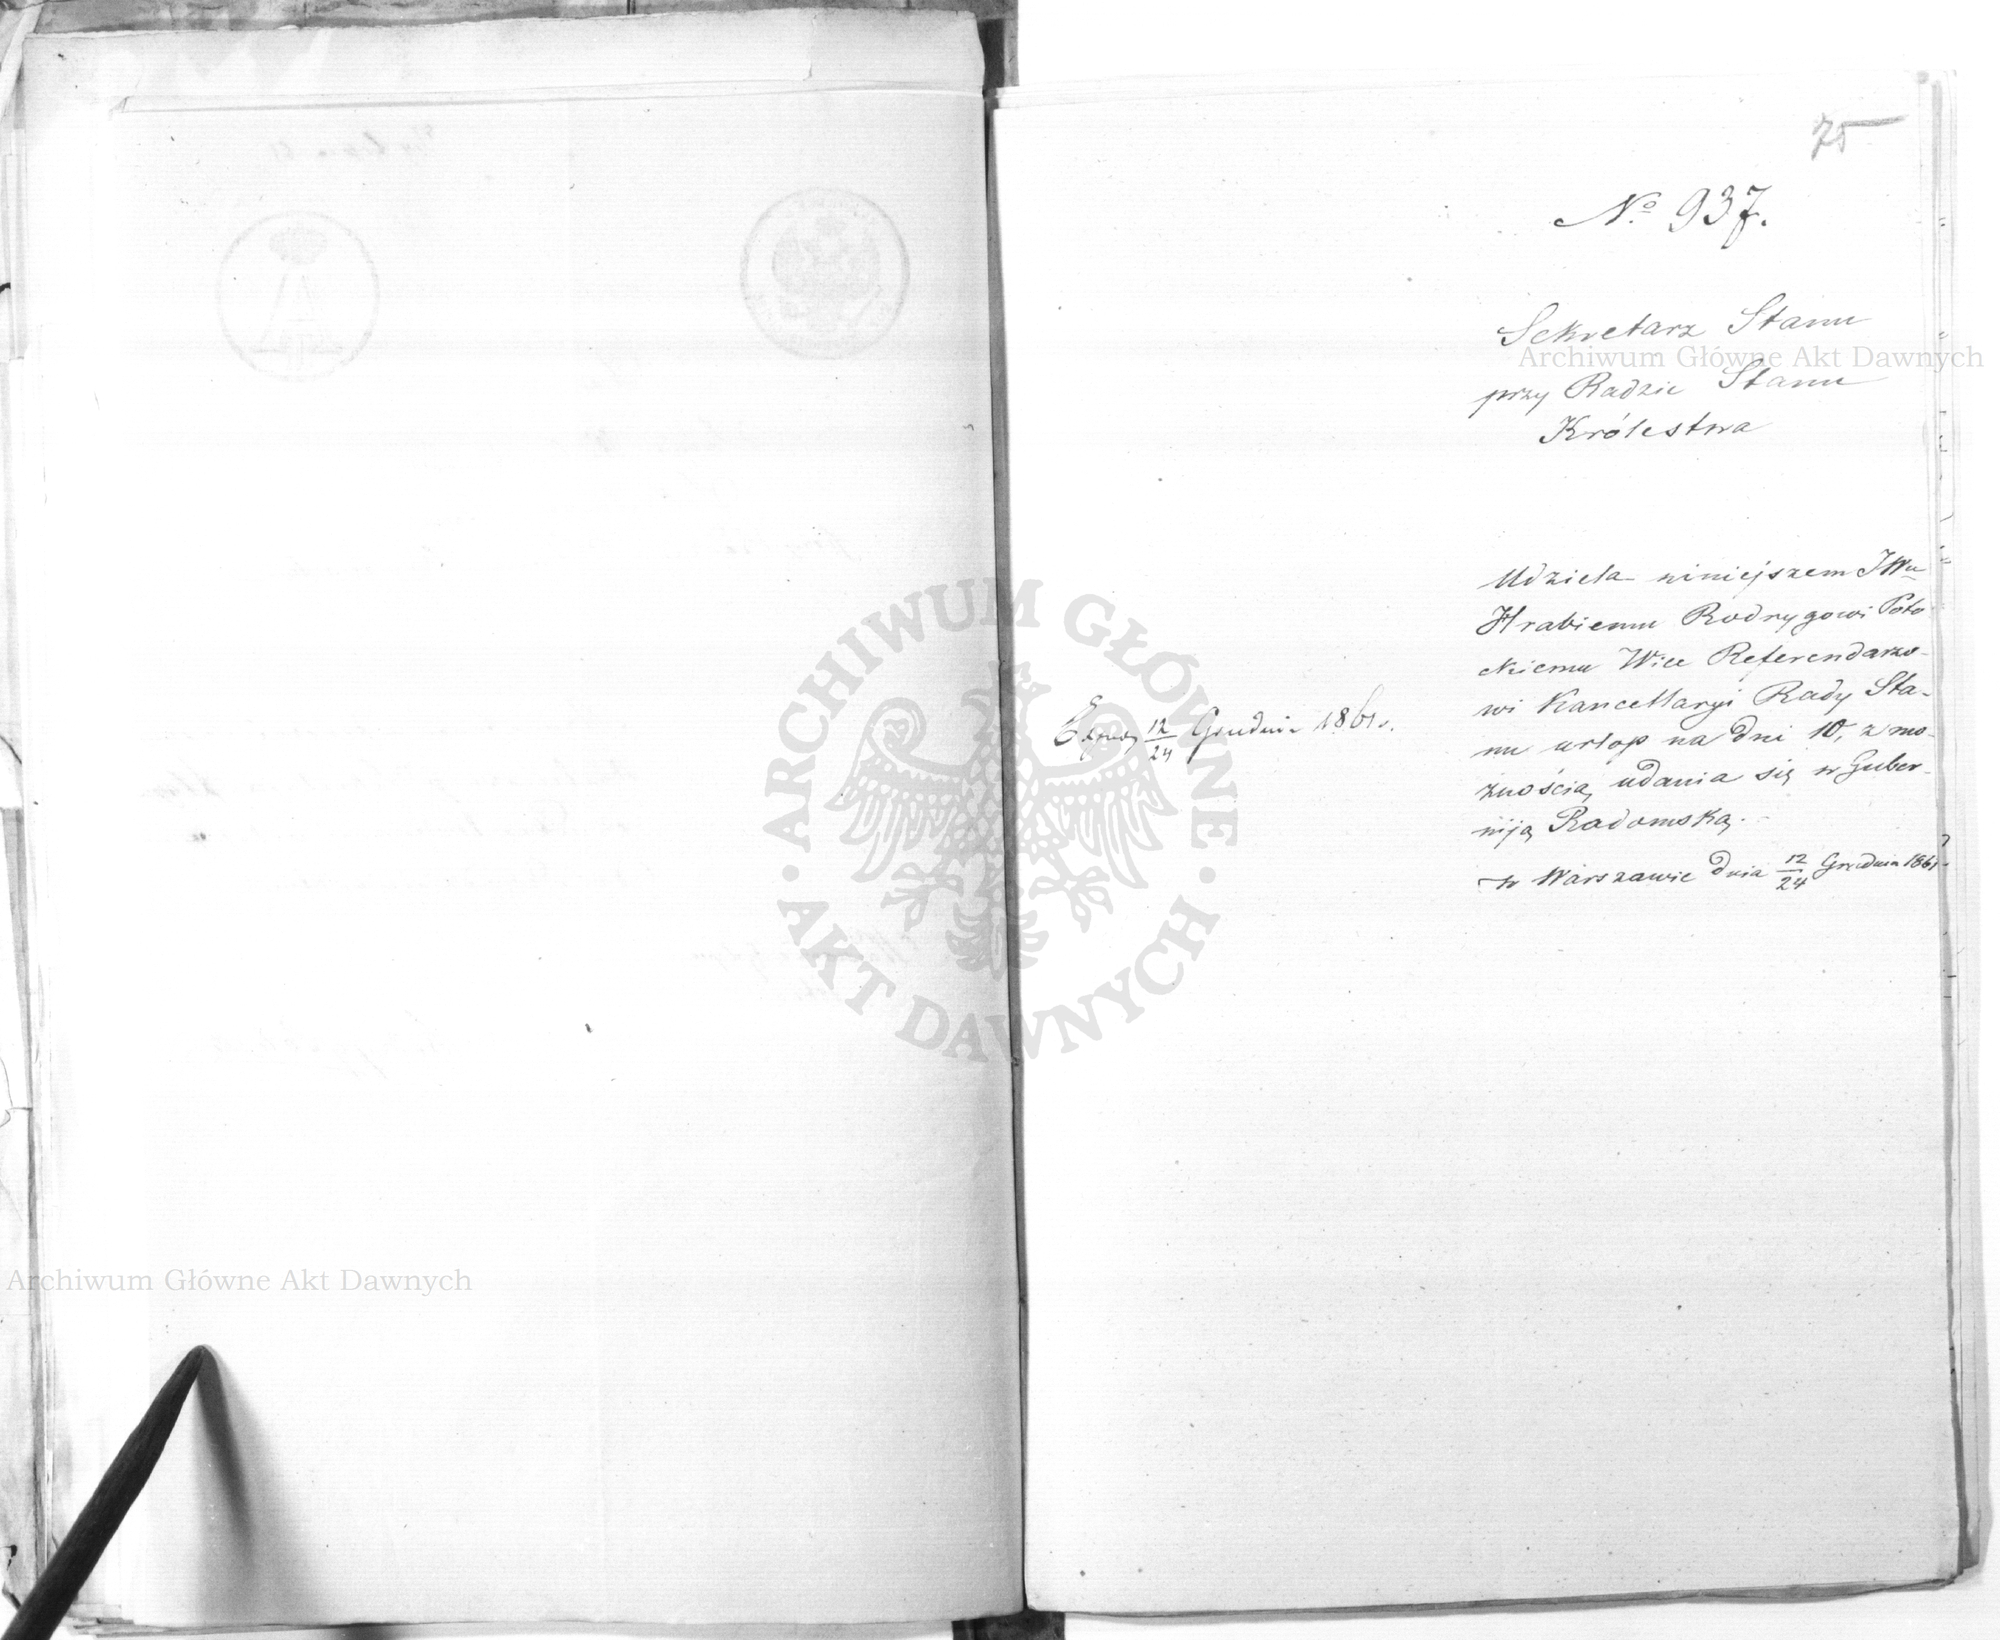 75
No 937.
Sekretarz Stanu
przy Radzie Stanu
Królestwa
Udziela niniejszem JWu
Hrabiemu Rodrygowi Poto
ckiemu Wice Referendarzo-
wi Kancellaryi Rady Sta-
nu urlop na dni 10, z mo-
żnością udania się w Guber-
niją Radomską.
w Warszawie dnia 12/24 Grudnia 1861
12/24 Grudnia 1861 r.
ARCHIWUM GŁÓWNE AKT DAWNYCH
Archiwum Główne Akt Dawnych
Archiwum Główne Akt Dawnych